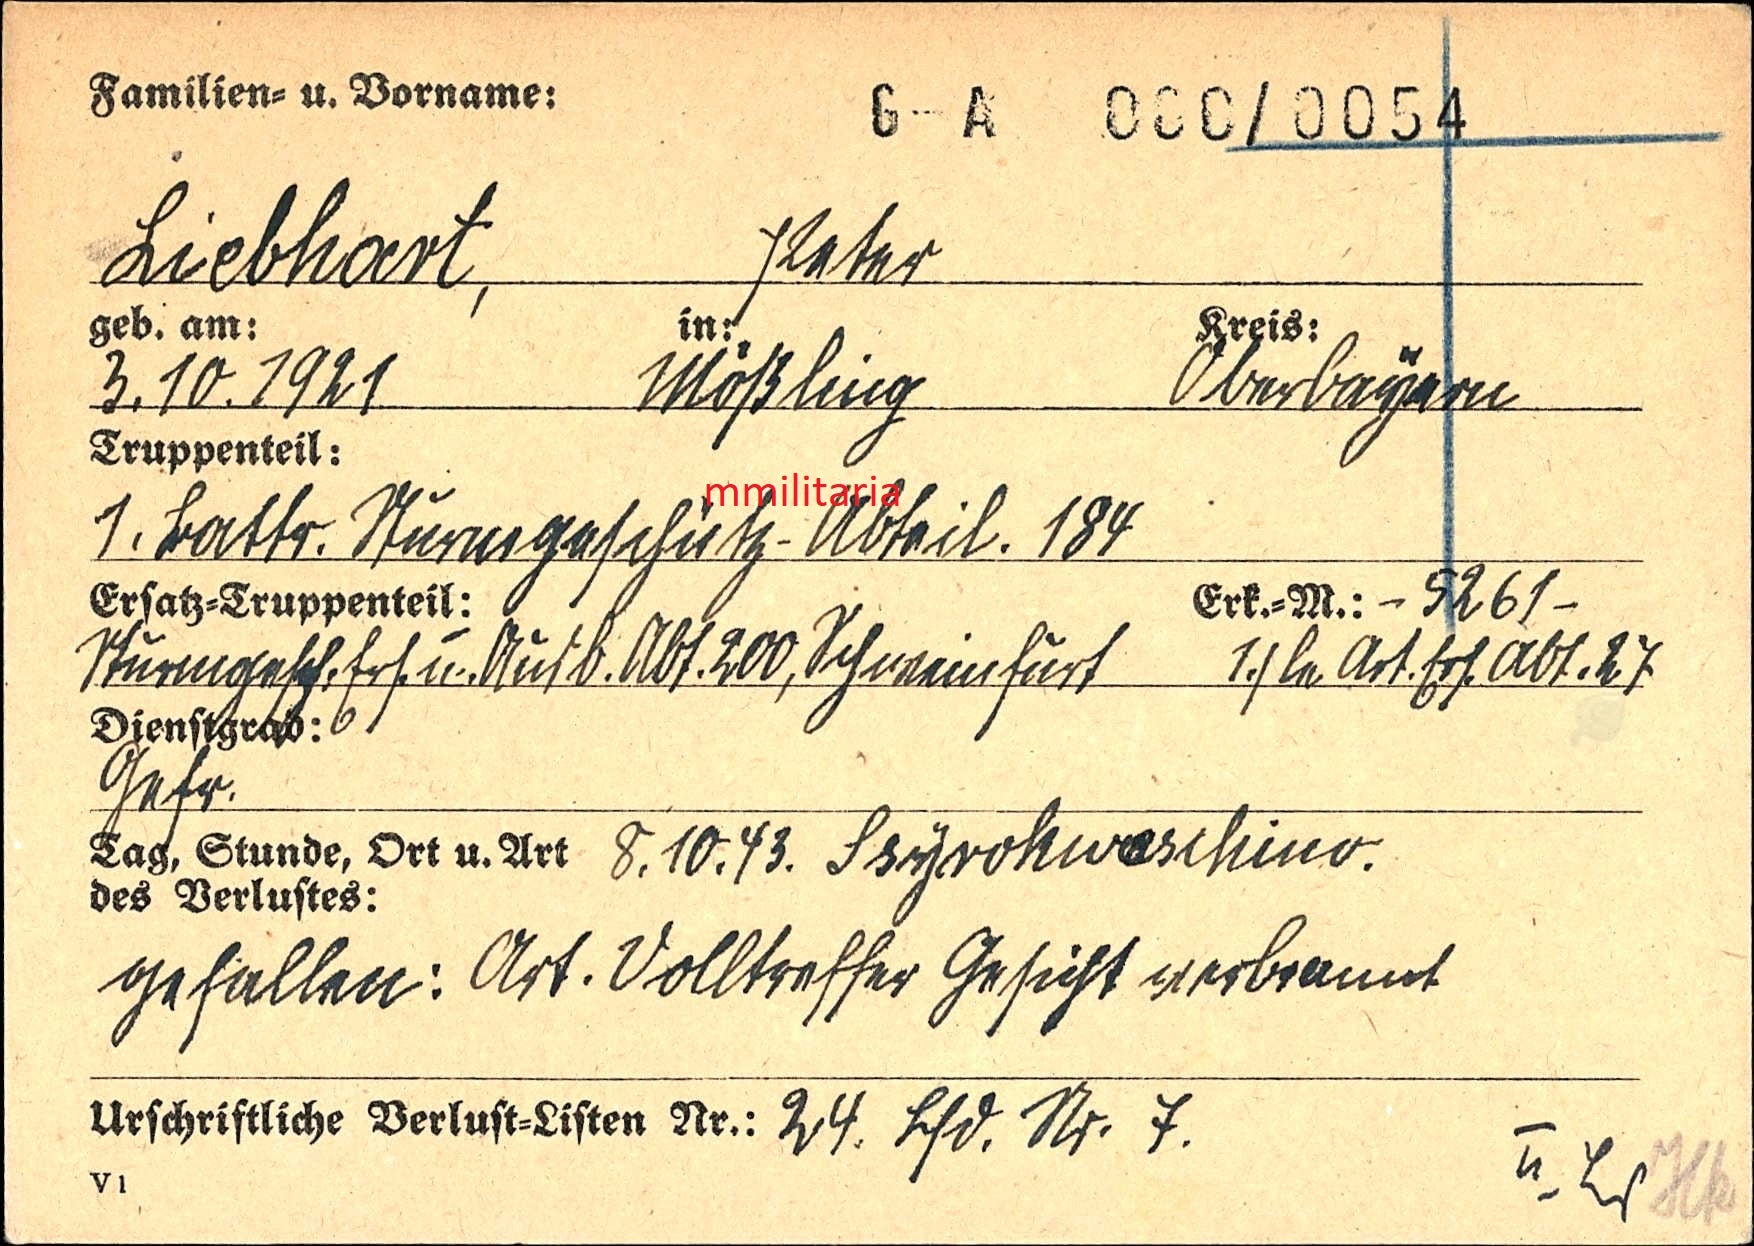 Familien- u. Vorname:
G-A 000/0054
Liebhart, Peter
geb. am: in: Kreis:
3.10.1921 Mößling Oberbayern
Truppenteil:
mmilitaria
1. Battr. Sturmgeschütz-Abteil. 184
Ersatz-Truppenteil: Erk.-M.: - 5261 -
Sturmgesch. Ers. u. Ausb. Abt. 200, Schweinfurt 1./le Art. Ers. Abt. 27
Dienstgrad:
Gefr.
Tag, Stunde, Ort u. Art 8.10.43. Ssyrokwaschino.
des Verlustes:
gefallen: Art. Volltreffer Gesicht verbrannt
Urschriftliche Verlust-Listen Nr.: 24. Lfd. Nr. 7.
V 1